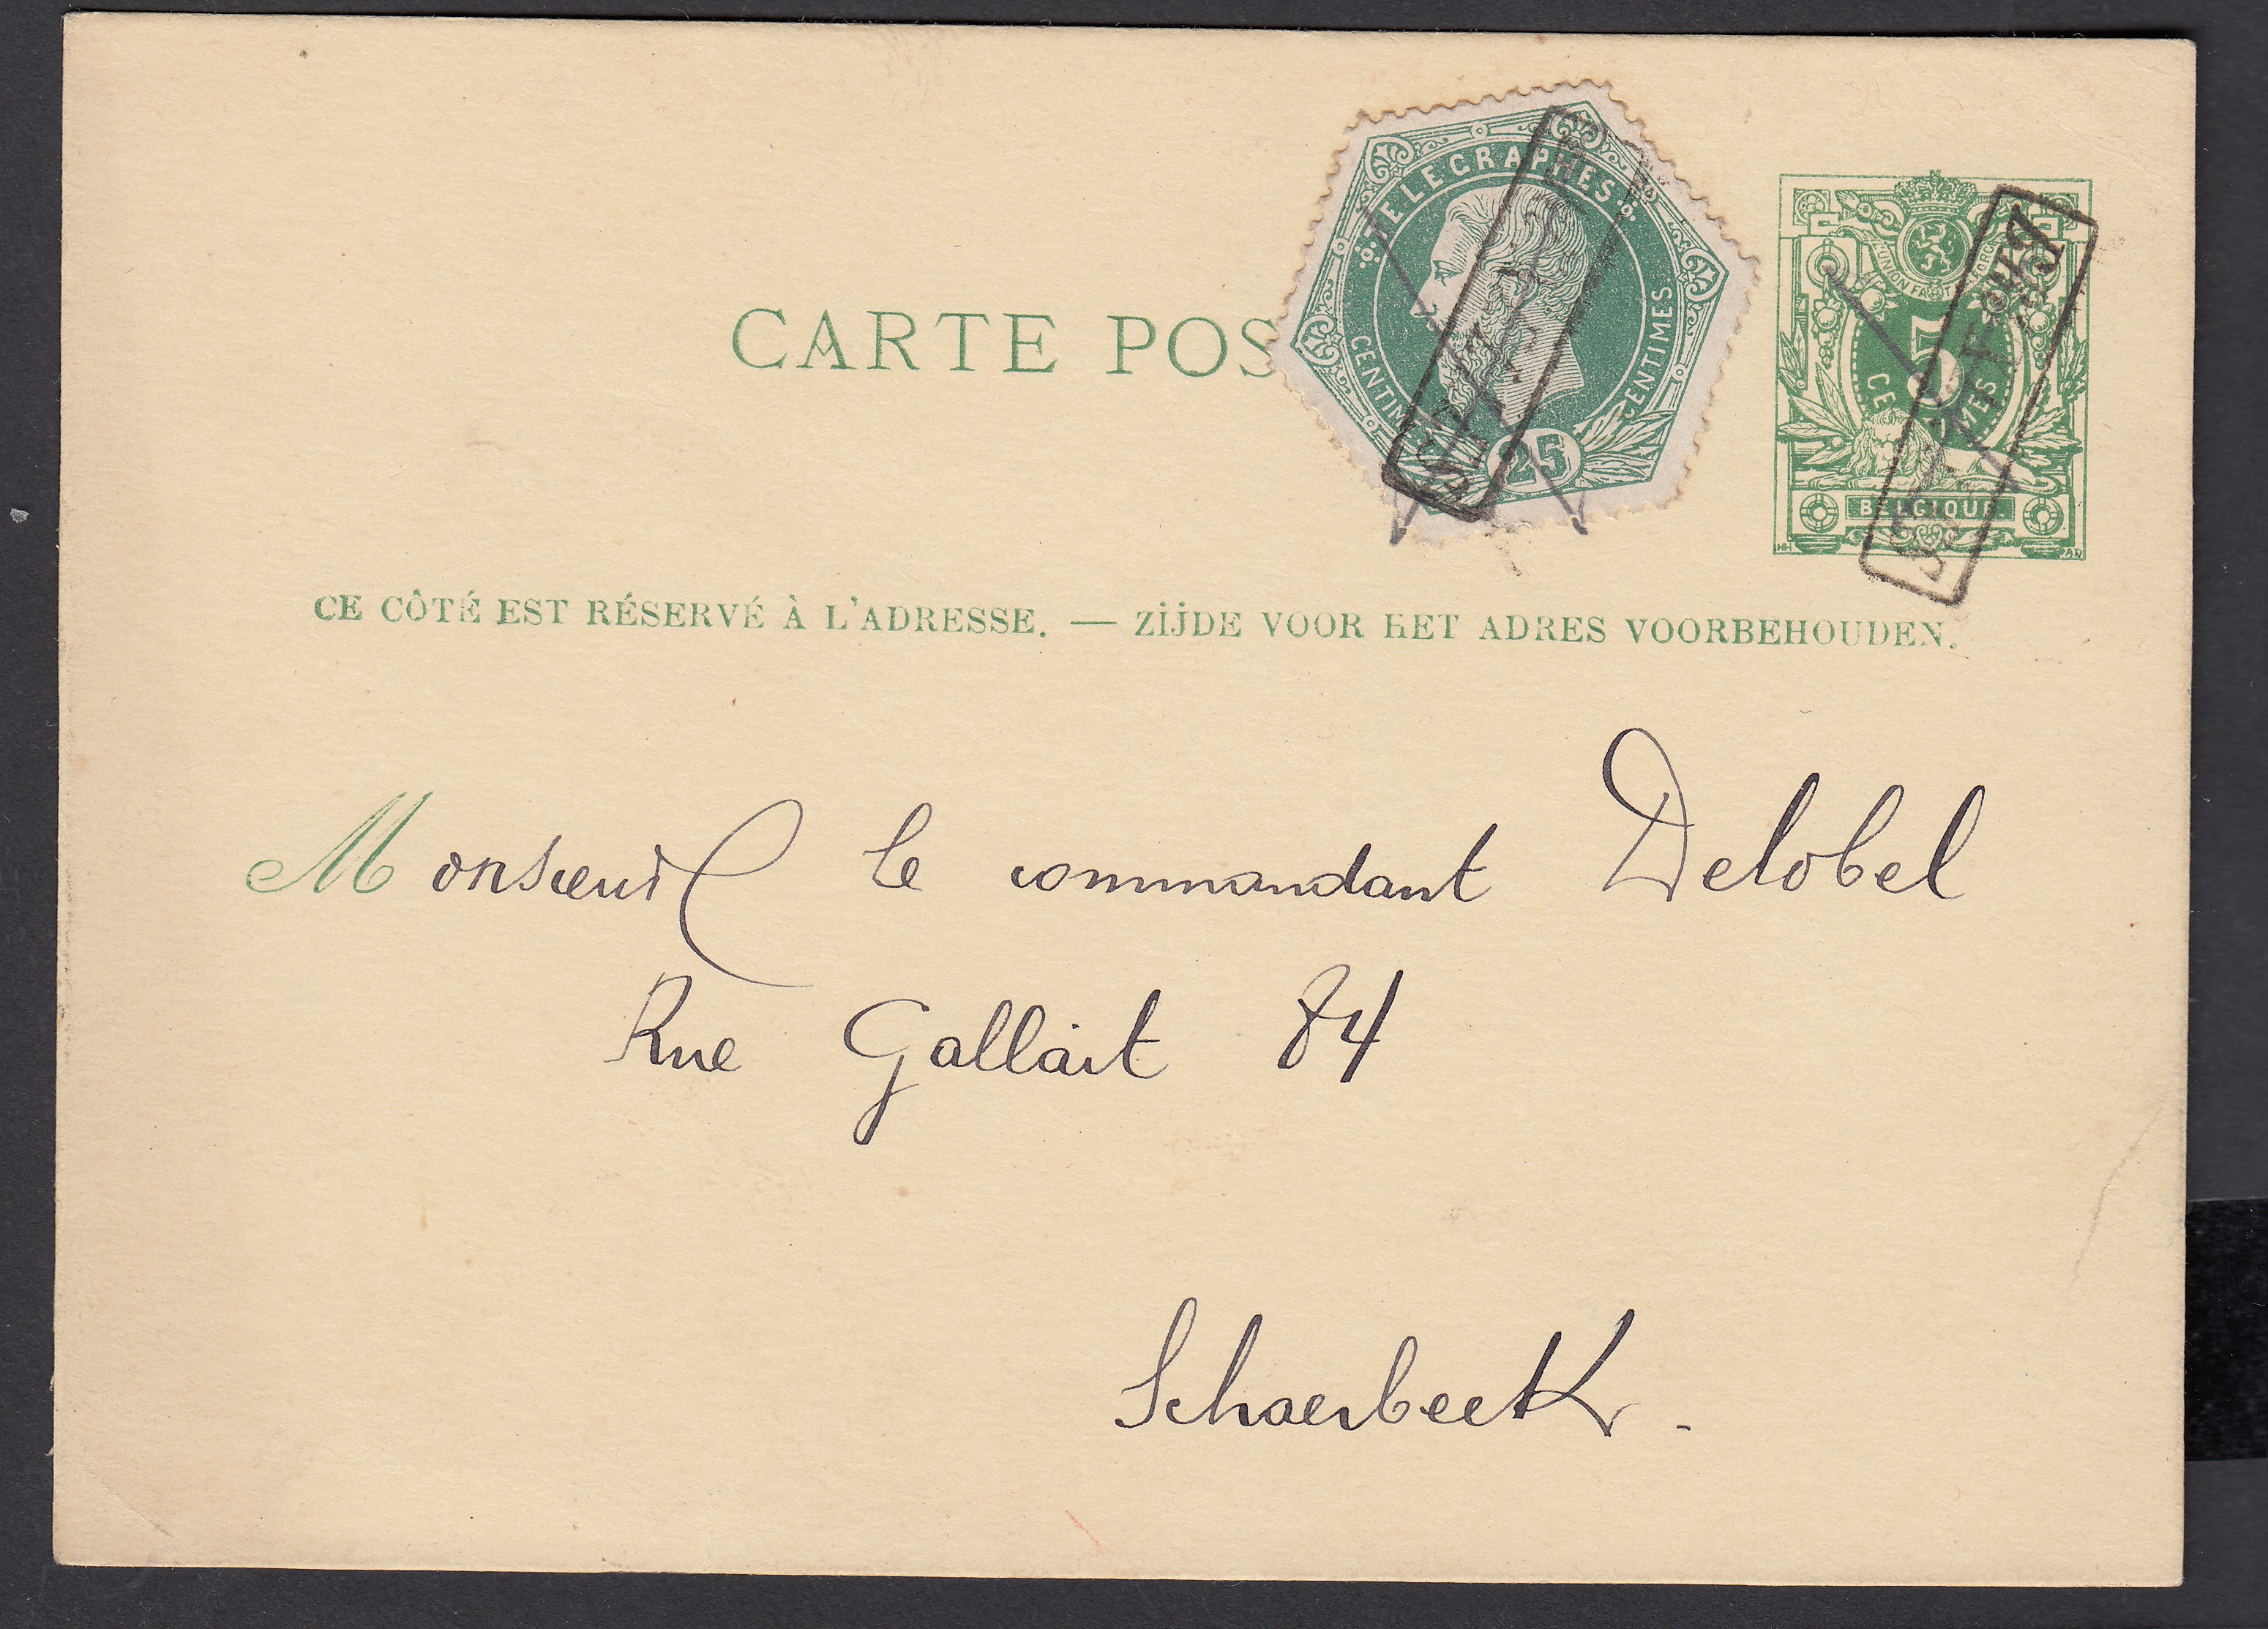 CARTE POS
TELEGRAPHES
CENTIMES
25
L'UNION FAIT LA FORCE
5
CE MES
BELGIQUE.
CE CÔTÉ EST RÉSERVÉ À L'ADRESSE. — ZIJDE VOOR HET ADRES VOORBEHOUDEN.
Monsieur le commandant Delobel
Rue Gallait 84
Schaerbeek.